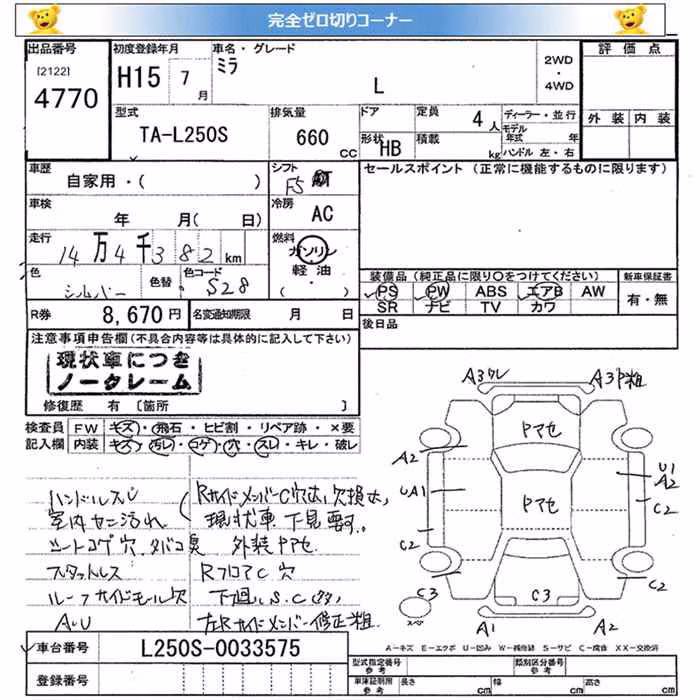 完全ゼロ切りコーナー
出品番号 初度登録年月 車名・グレード 2WD・4WD 評価点
[2122] 4770 H15 7月 ミラ L
外装 内装
型式 TA-L250S 排気量 660 CC ドア 形状 HB 定員 4人 積載 kg ディーラー・並行 モデル年式 年 ハンドル 左・右
車歴 自家用・( ) シフト F5 セールスポイント (正常に機能するものに限ります)
車検 年 月( 日) 冷房 AC
走行 14万4千382km 燃料 ガソリン・軽油・( )
色 シルバー 色替 色コード S28
装備品 (純正品に限り○をつけてください) 新車保証書
PS PW ABS エアB AW 有・無
SR ナビ TV カワ
R券 8,670円 名変通知期限 月 日 後日品
注意事項申告欄(不具合内容等は具体的に記入して下さい)
現状車につき
ノークレーム
修復歴 有 [箇所 ]
検査員 FW キズ・飛石・ヒビ割・リペア跡・×要
記入欄 内装 キズ・汚レ・コゲ・穴・スレ・キレ・破レ
ハンドルスレ
室内セニ汚れ 現状車 下見要す。
シートコゲ穴 タバコ臭 外装Pマセ
スタットレス RフロアC穴
ルーフサイドモール欠 下廻りS.C(多)
A・U 左Rサイドメンバー修正粗
A3ワレ A3P粗
Pマセ
A2 U1 A2
UA1 Pマセ C2
C2
C3 C3 C2
スペ A1 A2
A=キズ E=エクボ U=凹み W=補修跡 S=サビ C=腐食 XX=交換済
車台番号 L250S-0033575
登録番号
型式指定番号 参考 類別区分番号 参考
車庫証明用 参考 長さ cm 幅 cm 高さ cm